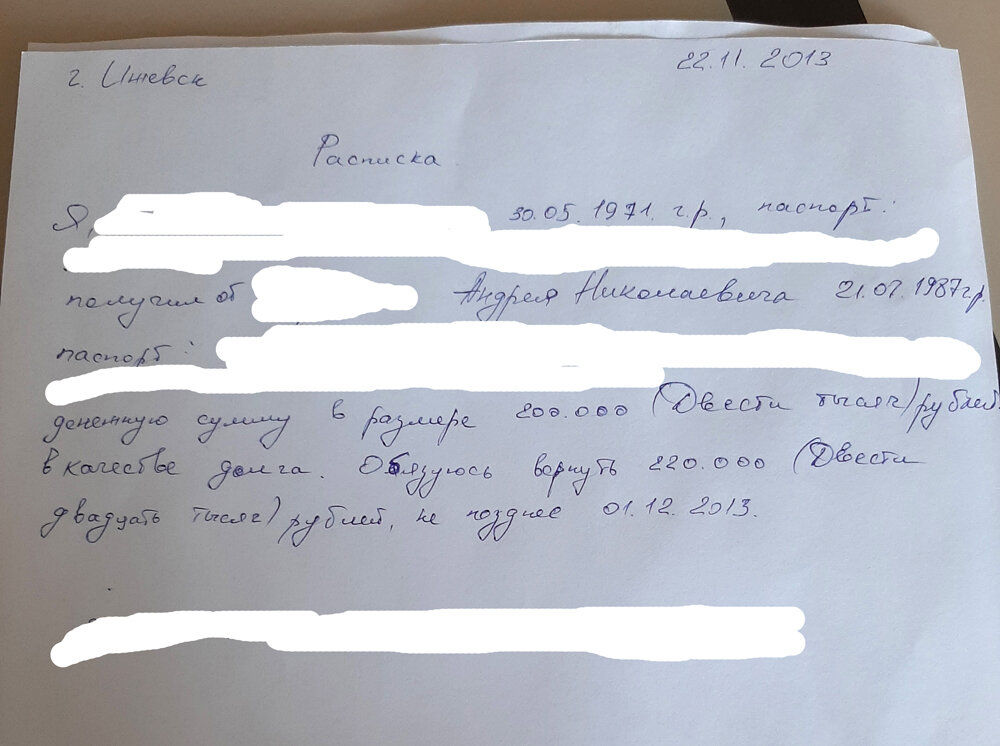 г. Ижевск 22.11.2013
Расписка
Я, 30.05.1971 г.р., паспорт:
получил от Андрея Николаевича 21.07.1987 г.р.
паспорт:
денежную сумму в размере 200.000 (Двести тысяч) рублей
в качестве долга. Обязуюсь вернуть 220.000 (Двести
двадцать тысяч) рублей, не позднее 01.12.2013.